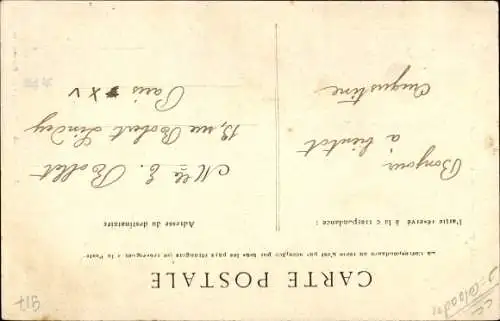 CARTE POSTALE
La Correspondance au recto n'est pas acceptée par tous les pays étrangers (se renseigner à la Poste)
Partie réservé à la correspondance :
Bonjour
à bientot
Augustine
Adresse du destinataire
Mlle E. Rollet
13, rue Robert Lindey
Paris XV
917